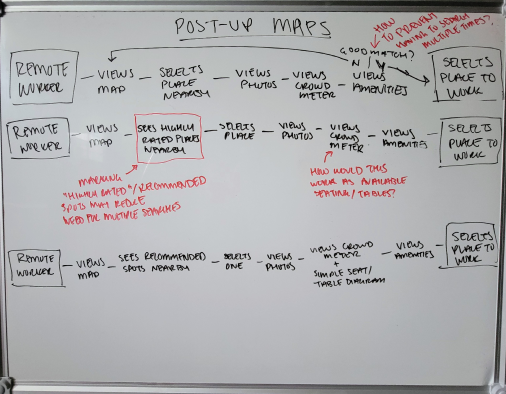 POST-UP MAPS
HOW
TO PREVENT
HAVING TO SEARCH
MULTIPLE TIMES?
GOOD MATCH?
N / Y
REMOTE
WORKER
VIEWS
MAP
SELECTS
PLACE
NEARBY
VIEWS
PHOTOS
VIEWS
CROWD
METER
VIEWS
AMENITIES
SELECTS
PLACE TO
WORK
REMOTE
WORKER
VIEWS
MAP
SEES HIGHLY
RATED PLACES
NEARBY
SELECTS
PLACE
VIEWS
PHOTOS
VIEWS
CROWD
METER
VIEWS
AMENITIES
SELECTS
PLACE TO
WORK
MARKING
"HIGHLY RATED"/RECOMMENDED
SPOTS MAY REDUCE
NEED FOR MULTIPLE SEARCHES
HOW WOULD THIS
WORK AS AVAILABLE
SEATING/TABLES?
REMOTE
WORKER
VIEWS
MAP
SEES RECOMMENDED
SPOTS NEARBY
SELECTS
ONE
VIEWS
PHOTOS
VIEWS CROWD
METER
+
SIMPLE SEAT/
TABLE DIAGRAM
VIEWS
AMENITIES
SELECTS
PLACE TO
WORK